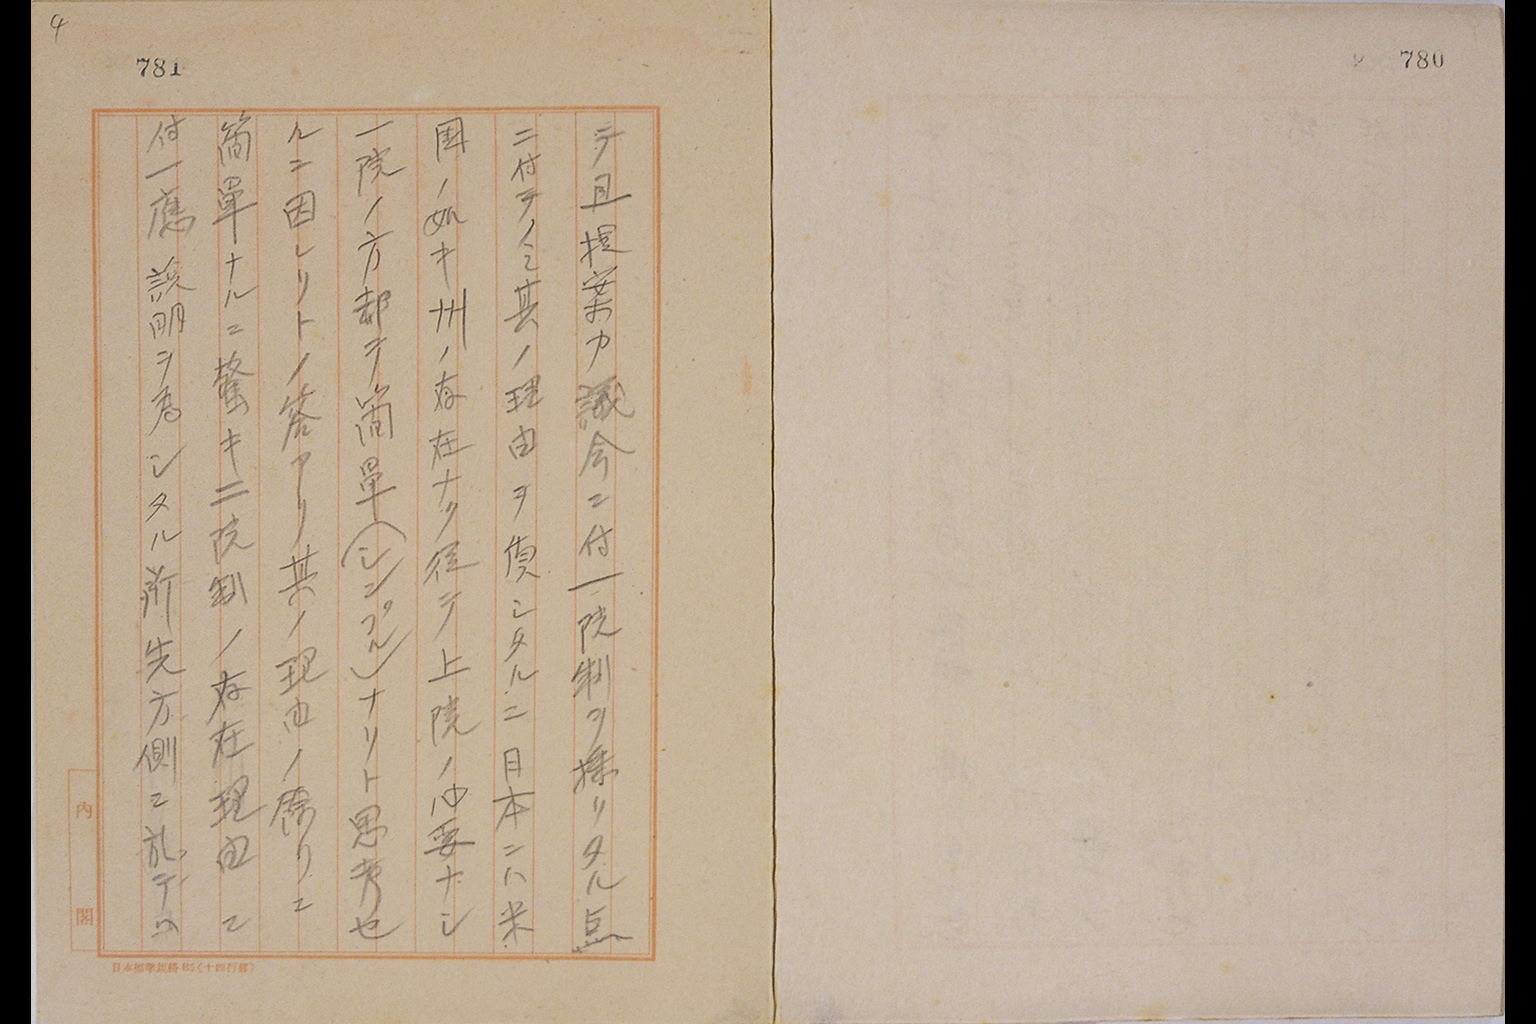 780
4
781
テ且提案カ議会ニ付一院制ヲ採リタル点
ニ付テノミ其ノ理由ヲ質シタルニ日本ニハ米
国ノ如キ州ノ存在ナク従テ上院ノ必要ナシ
一院ノ方却テ簡単(シンプル)ナリト思考セ
ルニ因レリトノ答アリ其ノ理由ノ余リニ
簡単ナルニ驚キ二院制ノ存在理由ニ
付一応説明ヲ為シタル所先方側ニ於テハ
内閣
日本標準規格B5(十四行罫)